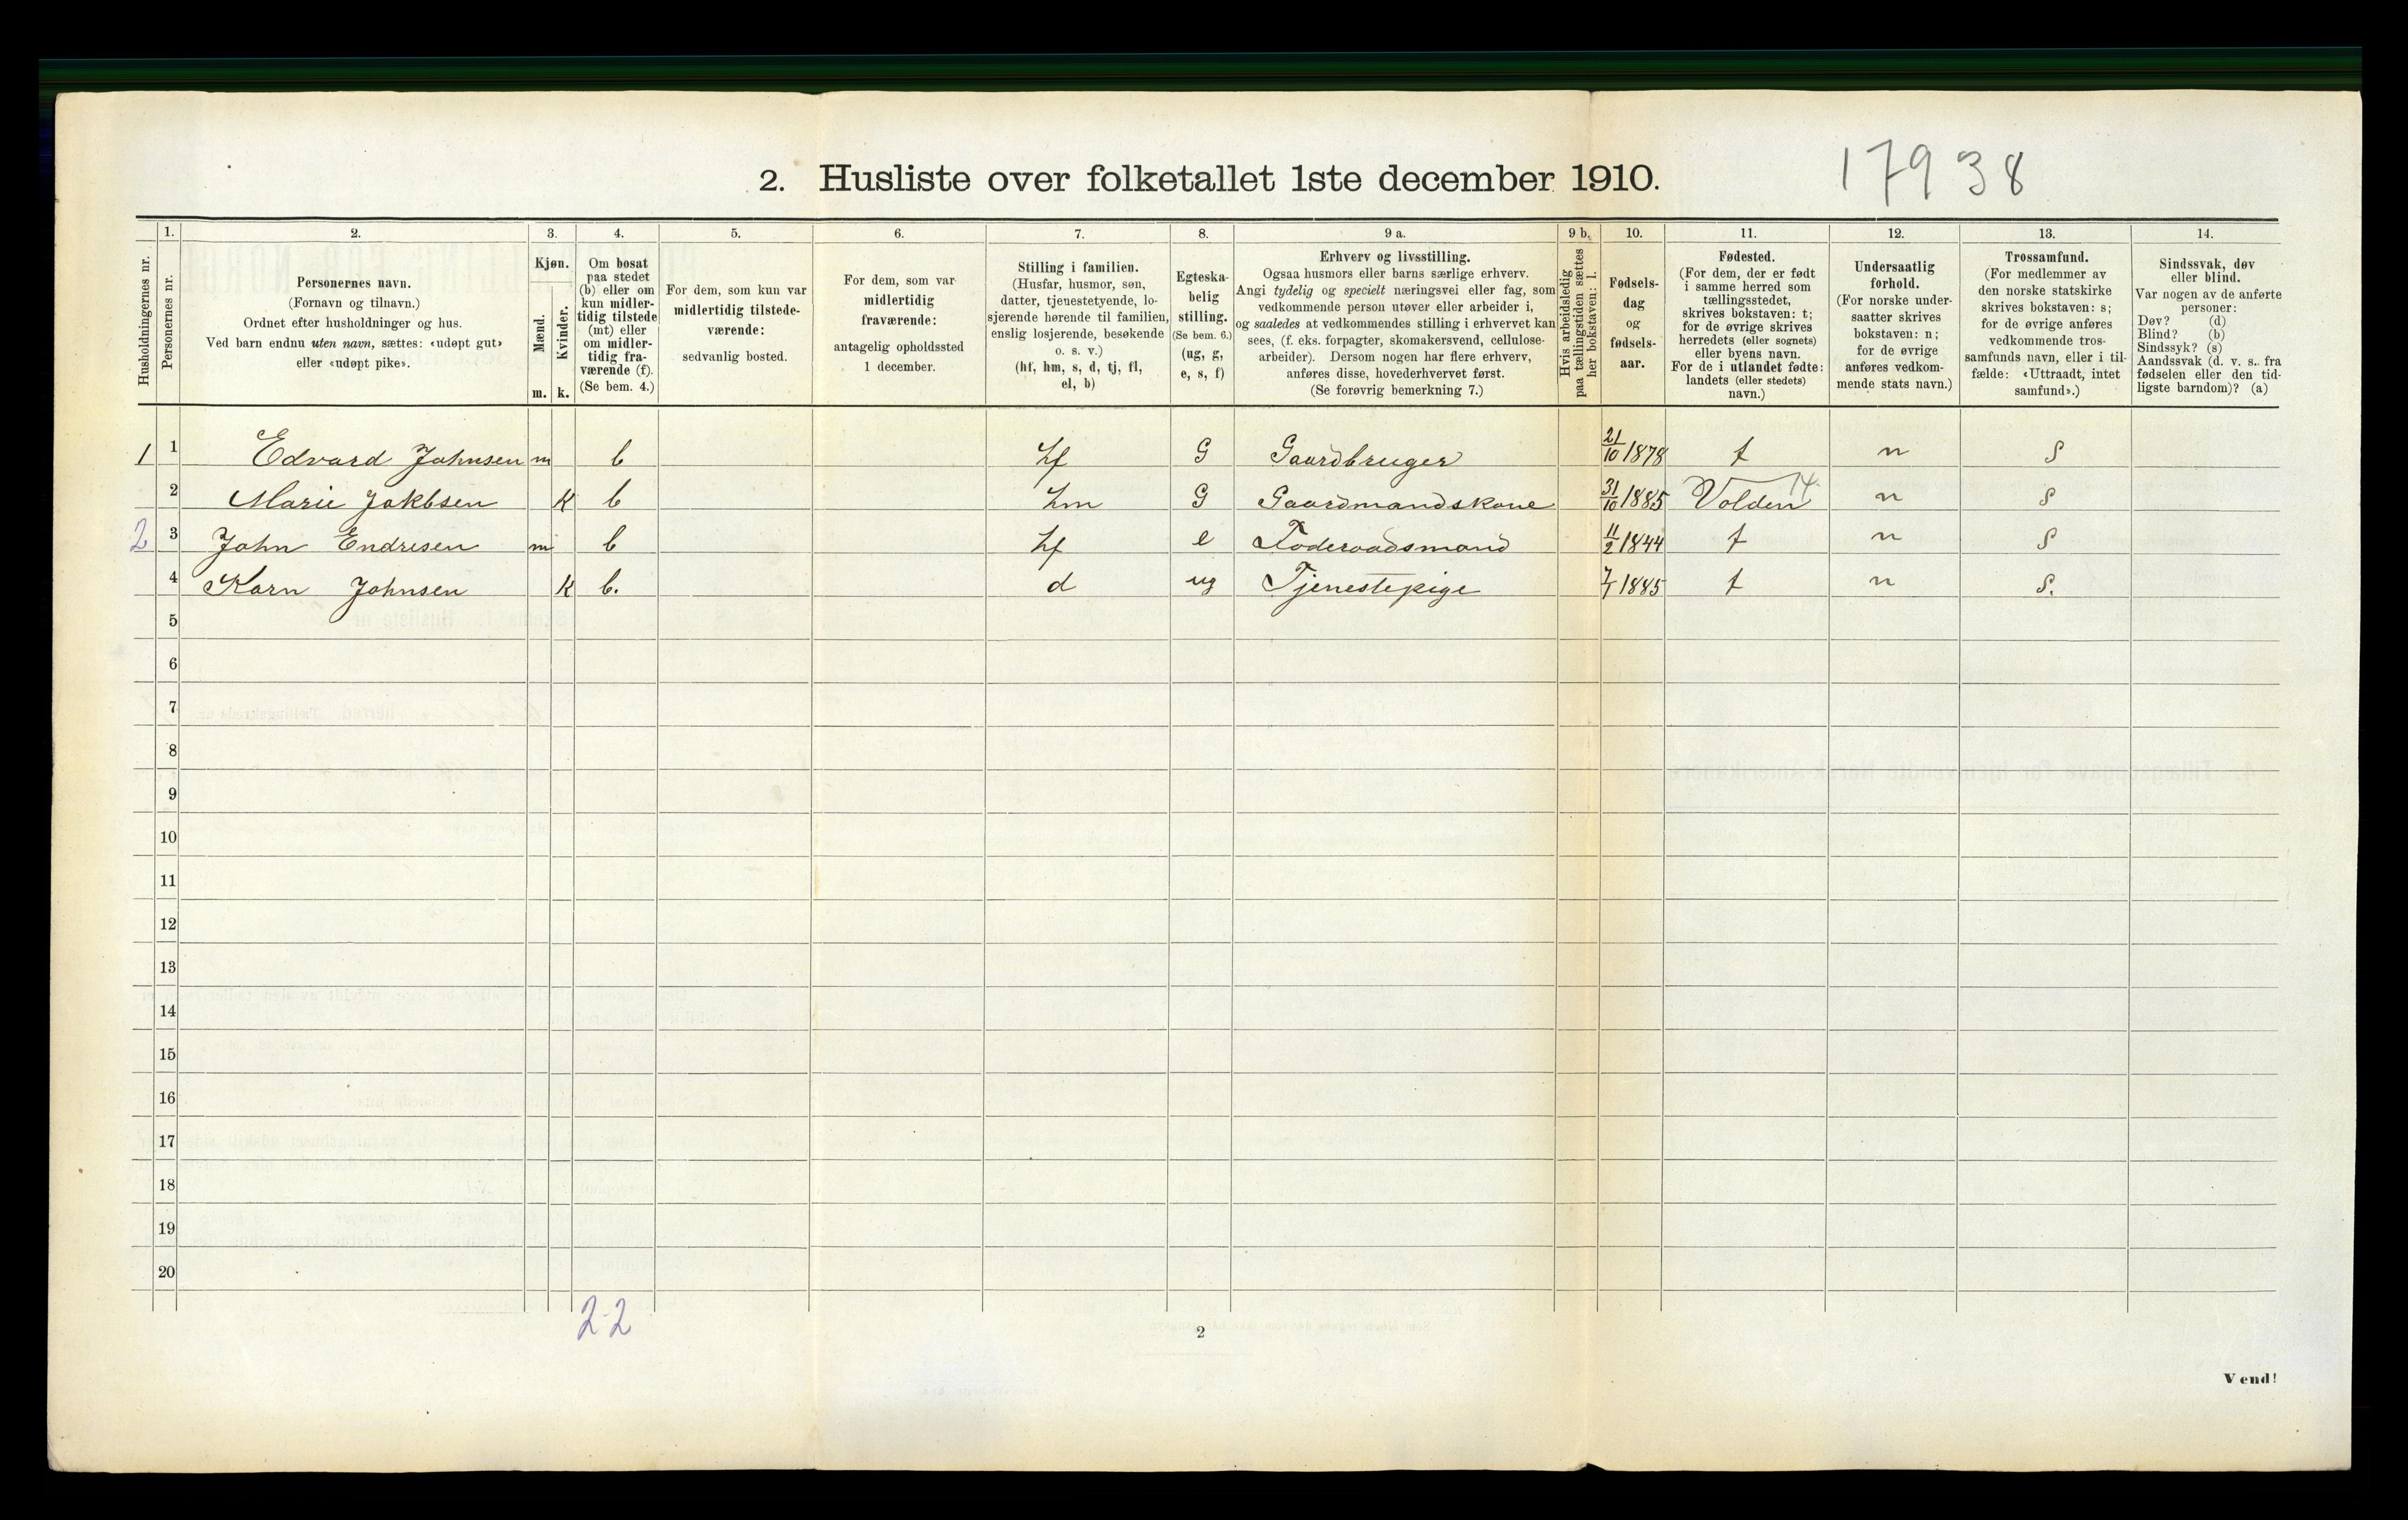 17938
2. Husliste over folketallet 1ste december 1910.
Husholdningernes nr.
1.
Personernes nr.
2.
Personernes navn.
(Fornavn og tilnavn.)
Ordnet efter husholdninger og hus.
Ved barn endnu uten navn, sættes: «udøpt gut»
eller «udøpt pike».
3.
Kjøn.
Mænd.
Kvinder.
m. k.
4.
Om bosat
paa stedet
(b) eller om
kun midler-
tidig tilstede
(mt) eller
om midler-
tidig fra-
værende (f).
(Se bem. 4.)
5.
For dem, som kun var
midlertidig tilstede-
værende:
sedvanlig bosted.
6.
For dem, som var
midlertidig
fraværende:
antagelig opholdssted
1 december.
7.
Stilling i familien.
(Husfar, husmor, søn,
datter, tjenestetyende, lo-
sjerende hørende til familien,
enslig losjerende, besøkende
o. s. v.)
(hf, hm, s, d, tj, fl,
el, b)
8.
Egteska-
belig
stilling.
(Se bem. 6.)
(ug, g,
e, s, f)
9 a.
Erhverv og livsstilling.
Ogsaa husmors eller barns særlige erhverv.
Angi tydelig og specielt næringsvei eller fag, som
vedkommende person utøver eller arbeider i,
og saaledes at vedkommendes stilling i erhvervet kan
sees, (f. eks. forpagter, skomakersvend, cellulose-
arbeider). Dersom nogen har flere erhverv,
anføres disse, hovederhvervet først.
(Se forøvrig bemerkning 7.)
9 b.
Hvis arbeidsledig
paa tællingstiden sættes
her bokstaven: l.
10.
Fødsels-
dag
og
fødsels-
aar.
11.
Fødested.
(For dem, der er født
i samme herred som
tællingsstedet,
skrives bokstaven: t;
for de øvrige skrives
herredets (eller sognets)
eller byens navn.
For de i utlandet fødte:
landets (eller stedets)
navn.)
12.
Undersaatlig
forhold.
(For norske under-
saatter skrives
bokstaven: n;
for de øvrige
anføres vedkom-
mende stats navn.)
13.
Trossamfund.
(For medlemmer av
den norske statskirke
skrives bokstaven: s;
for de øvrige anføres
vedkommende tros-
samfunds navn, eller i til-
fælde: «Uttraadt, intet
samfund».)
14.
Sindssvak, døv
eller blind.
Var nogen av de anførte
personer:
Døv? (d)
Blind? (b)
Sindssyk? (s)
Aandssvak (d. v. s. fra
fødselen eller den tid-
ligste barndom)? (a)
1 1 Edvard Johnsen m b hf G Gaardbruger 21/10 1878 t n S
2 Marie Jakbsen K b hm G Gaardmandskone 31/10 1885 Volden 14 n S
2 3 John Endresen m b hf e Foderaadsmand 11/2 1844 t n S
4 Karn Johnsen K b. d ug Tjenestepige 7/1 1885 t n S.
5
6
7
8
9
10
11
12
13
14
15
16
17
18
19
20
2-2
2
Vend!